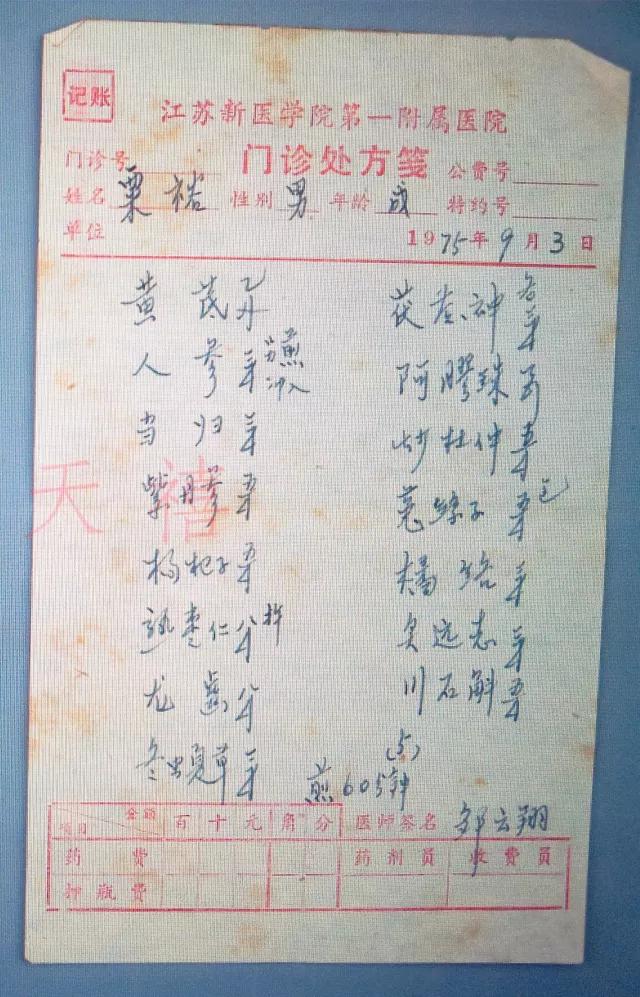 记账
江苏新医学院第一附属医院
门诊处方笺
门诊号
公费号
姓名 栗裕 性别 男 年龄 成 特约号
单位
1975年9月3日
黄芪
茯苓神 各三钱
人参 三钱 另煎冲入
阿胶珠
当归 三钱
炒杜仲 五钱
紫丹参 五钱
菟丝子 五钱 包
枸杞子 五钱
橘络 三钱
熟枣仁 杵
炙远志 三钱
龙齿
川石斛 五钱
冬虫夏草 三钱
(5)
煎60分钟
天禧
项目 金额 百 十 元 角 分 医师签名 邹云翔
药费 药剂员 收费员
押瓶费